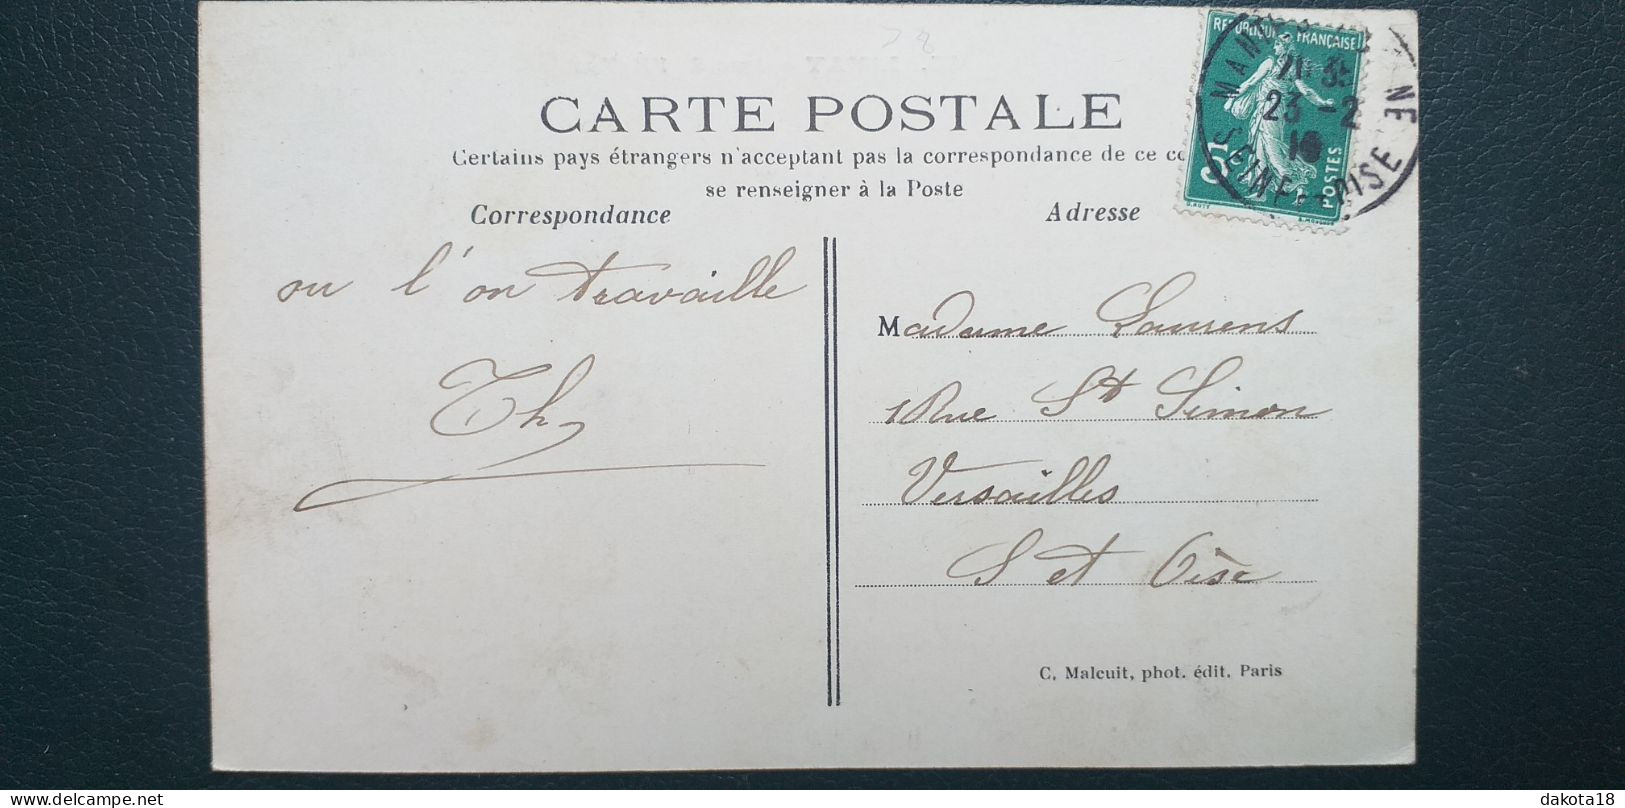 CARTE POSTALE
Certains pays étrangers n'acceptant pas la correspondance de ce
se renseigner à la Poste
Correspondance
Adresse
REPUBLIQUE FRANÇAISE
POSTES
23 -2
SEINE-&-OISE
ou l'on travaille
Th
Madame Laurens
1 Rue St Simon
Versailles
S et Oise
C. Malcuit, phot. édit. Paris
delcampe.net
dakota18